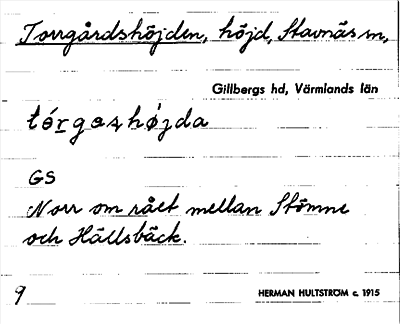 Torrgårdshöjden, höjd, Stavnäs sn,
Gillbergs hd, Värmlands län
GS
Norr om rået mellan Stömne
och Hällsbäck.
9
HERMAN HULTSTRÖM c. 1915